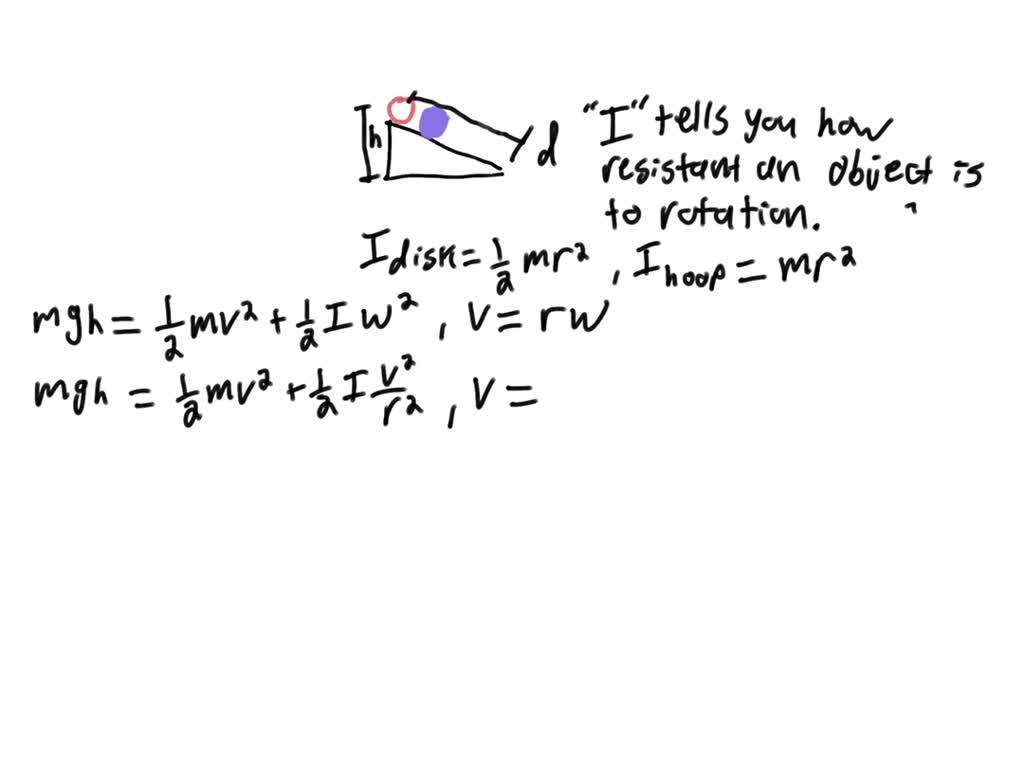 h
d
"I" tells you how
resistant an object is
to rotation.
I disk = 1/2 mr², I hoop = mr²
mgh = 1/2 mv² + 1/2 I w², v = rw
mgh = 1/2 mv² + 1/2 I v²/r², v =